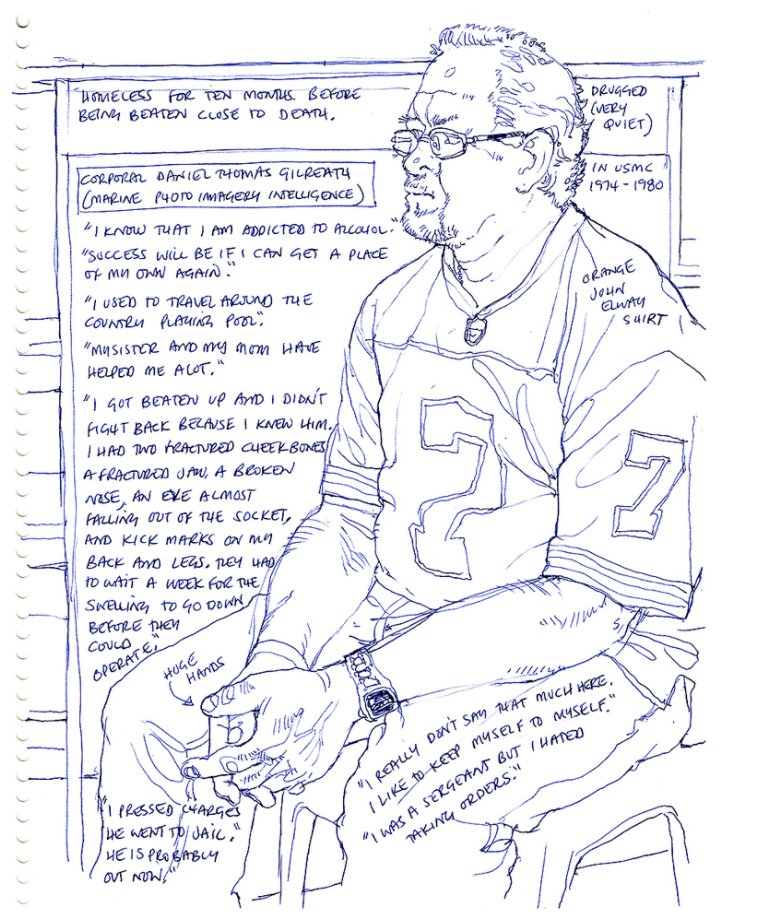 HOMELESS FOR TEN MONTHS BEFORE
BEING BEATEN CLOSE TO DEATH.
DRUGGED
(VERY
QUIET)
CORPORAL DANIEL THOMAS GILREATH
(MARINE PHOTO IMAGERY INTELLIGENCE)
IN USMC
1974-1980
"I KNOW THAT I AM ADDICTED TO ALCOHOL."
"SUCCESS WILL BE IF I CAN GET A PLACE
OF MY OWN AGAIN."
"I USED TO TRAVEL AROUND THE
COUNTRY PLAYING POOL."
"MY SISTER AND MY MOM HAVE
HELPED ME ALOT."
ORANGE
JOHN
ELWAY
SHIRT
"I GOT BEATEN UP AND I DIDN'T
FIGHT BACK BECAUSE I KNEW HIM.
I HAD TWO FRACTURED CHEEKBONES
A FRACTURED JAW, A BROKEN
NOSE, AN EYE ALMOST
FALLING OUT OF THE SOCKET,
AND KICK MARKS ON MY
BACK AND LEGS. THEY HAD
TO WAIT A WEEK FOR THE
SWELLING TO GO DOWN
BEFORE THEY
COULD
OPERATE."
2
7
HUGE
HANDS
"I REALLY DON'T SAY THAT MUCH HERE.
I LIKE TO KEEP MYSELF TO MYSELF."
"I WAS A SERGEANT BUT I HATED
TAKING ORDERS."
"I PRESSED CHARGES
HE WENT TO JAIL."
HE IS PROBABLY
OUT NOW."